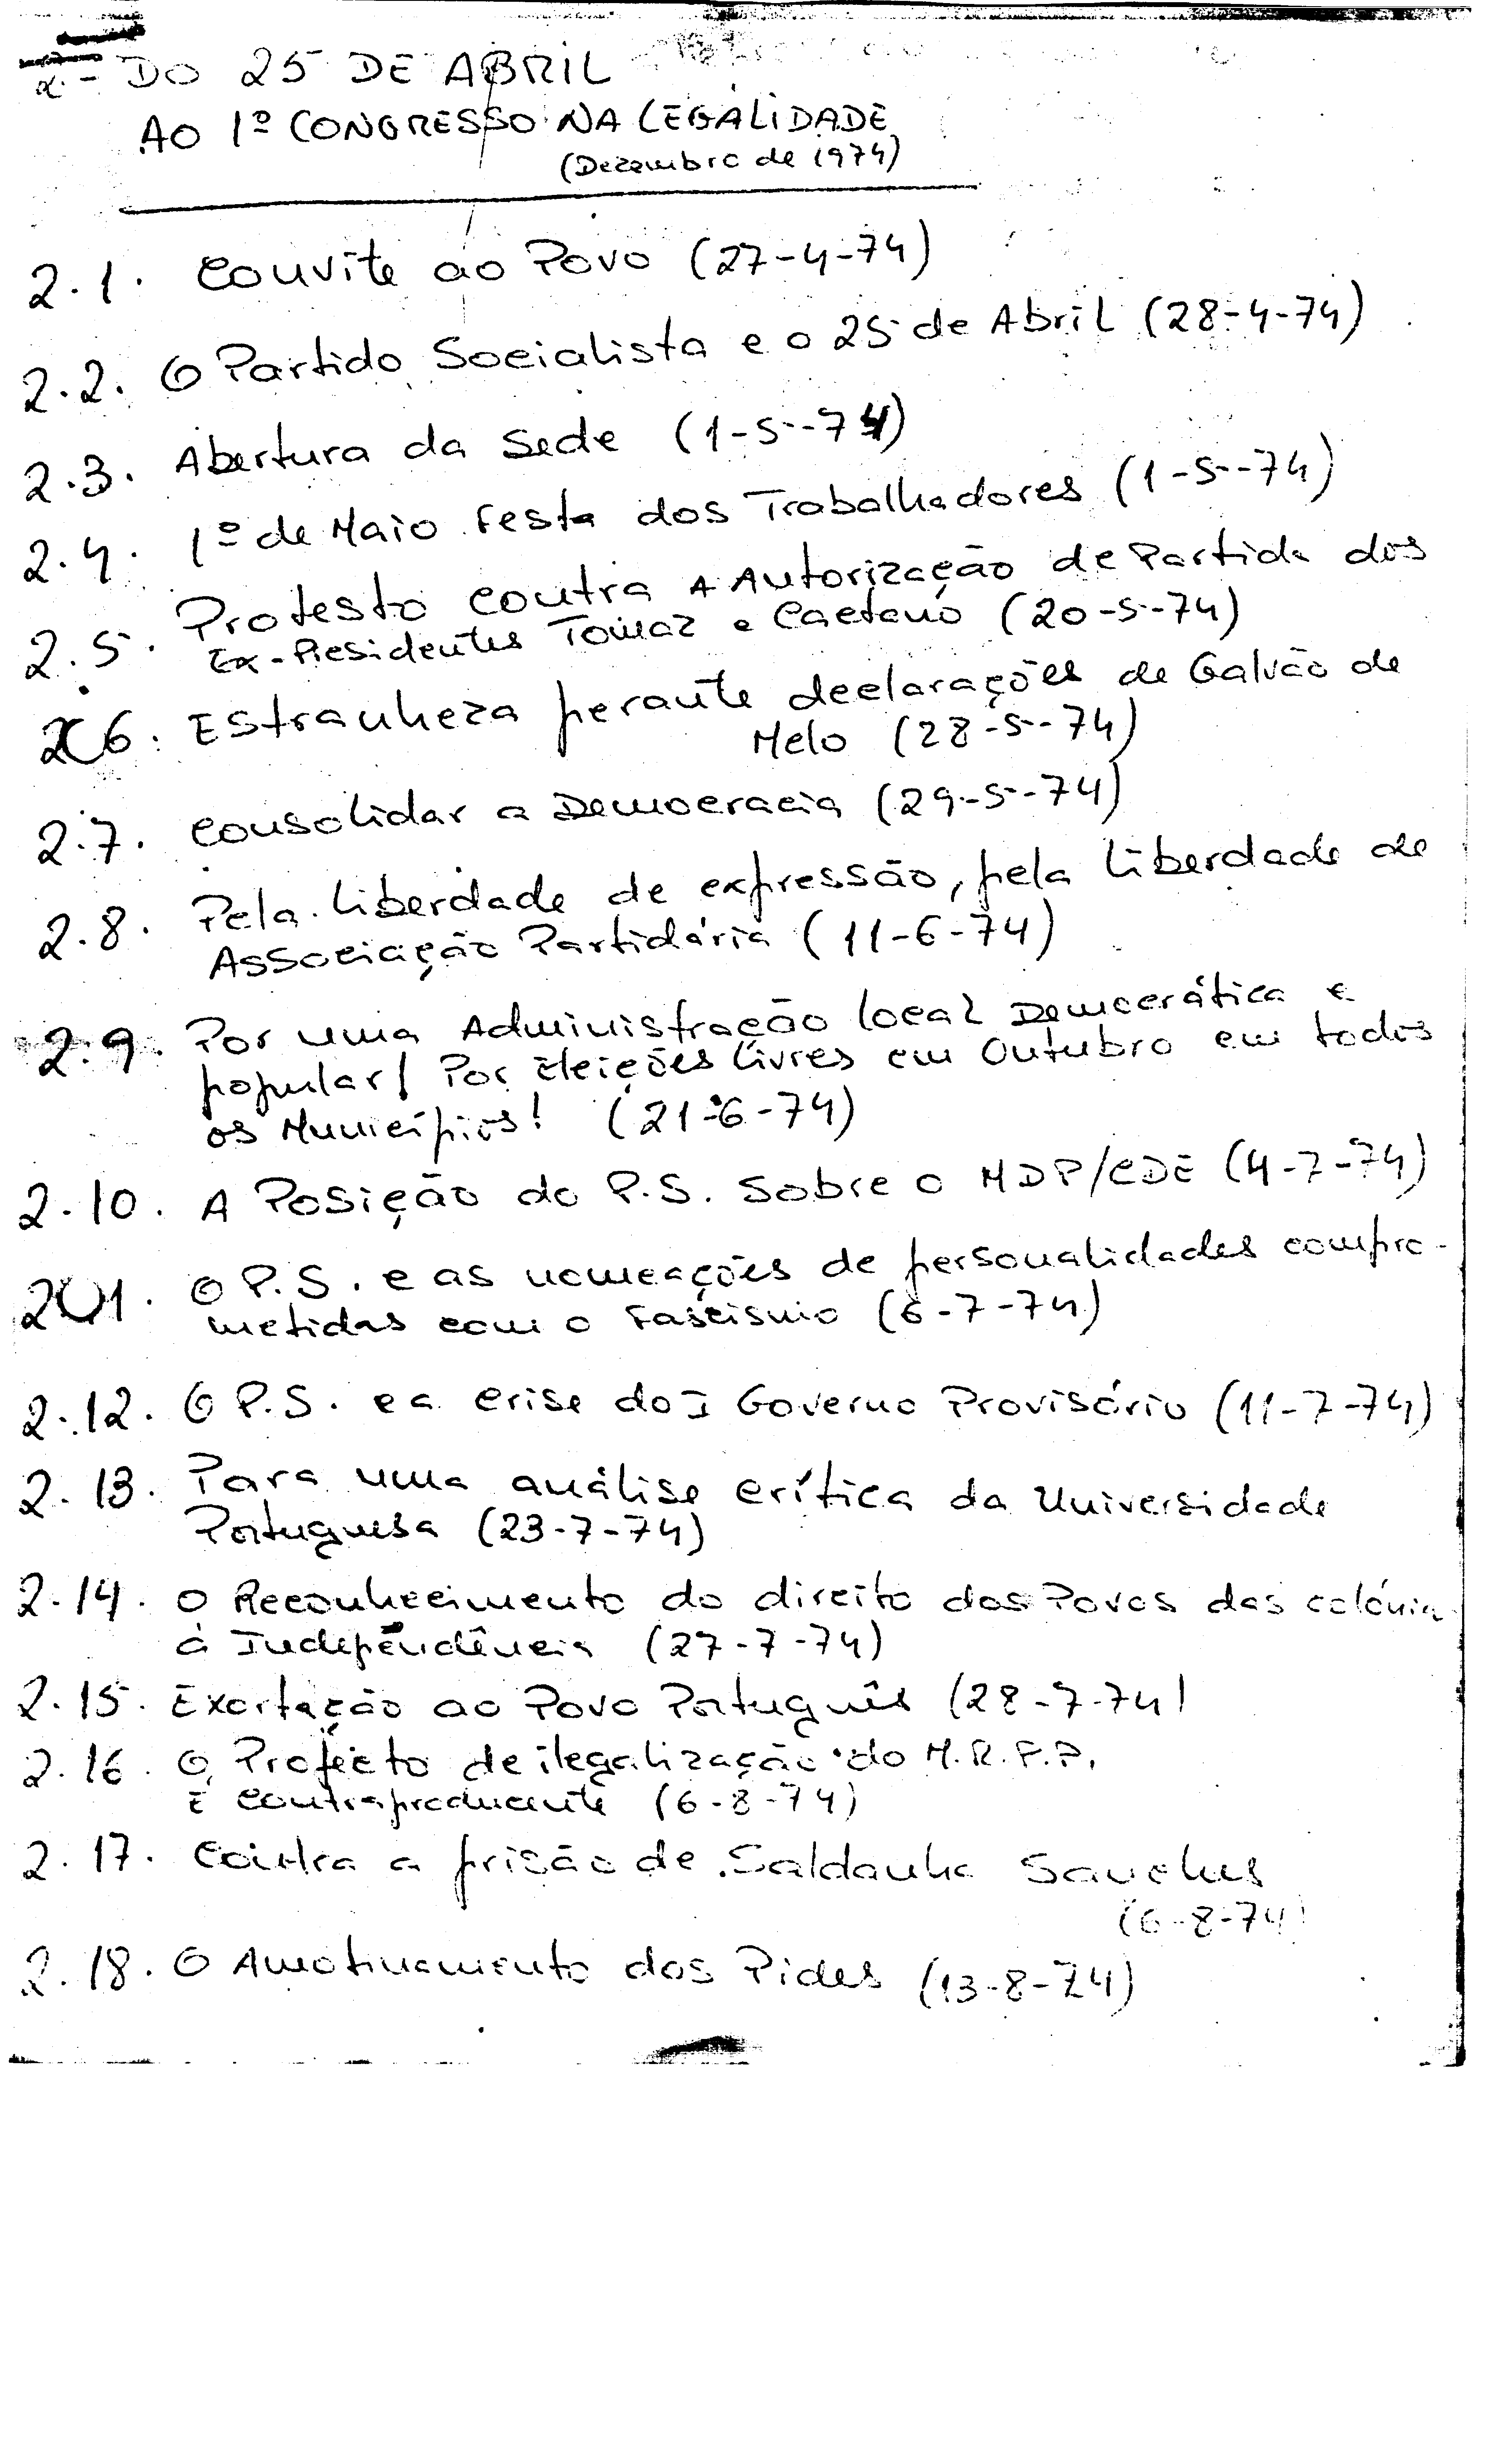 2 - DO 25 DE ABRIL
AO 1º CONGRESSO NA LEGALIDADE
(Dezembro de 1974)
2.1. Convite ao Povo (27-4-74)
2.2. O Partido Socialista e o 25 de Abril (28-4-74)
2.3. Abertura da Sede (1-5-74)
2.4. 1º de Maio Festa dos Trabalhadores (1-5-74)
2.5. Protesto contra A Autorização de Partida dos
Ex-Presidentes Tomaz e Caetano (20-5-74)
2.6. Estranheza perante declarações de Galvão de
Melo (28-5-74)
2.7. Consolidar a Democracia (29-5-74)
2.8. Pela Liberdade de expressão, pela liberdade de
Associação Partidária (11-6-74)
2.9. Por uma Administração local Democrática e
popular! Por Eleições Livres em Outubro em todos
os Municípios! (21-6-74)
2.10. A Posição do P.S. Sobre o MDP/CDE (4-7-74)
2.11. O P.S. e as nomeações de personalidades compro-
metidas com o Fascismo (6-7-74)
2.12. O P.S. e a crise do I Governo Provisório (11-7-74)
2.13. Para uma análise crítica da Universidade
Portuguesa (23-7-74)
2.14. O Reconhecimento do direito dos Povos das colónia
à Independência (27-7-74)
2.15. Exortação ao Povo Português (28-7-74)
2.16. O Projecto de ilegalização do M.R.P.P.
É Contraproducente (6-8-74)
2.17. Contra a prisão de Saldanha Sanches
(6-8-74)
2.18. O Amotinamento dos Pides (13-8-74)